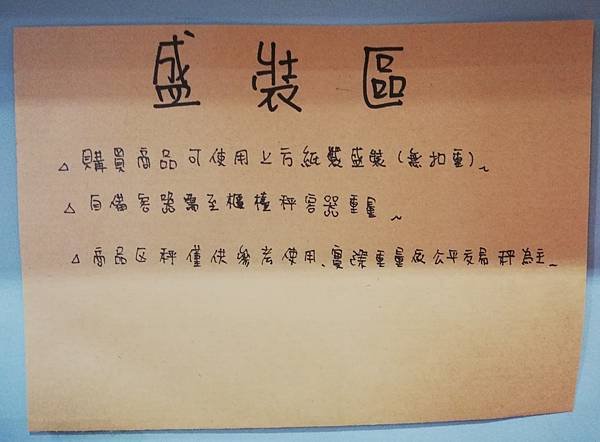 盛裝區
△ 購買商品可使用上方紙袋盛裝(無扣重)~
△ 自備容器需至櫃檯秤容器重量~
△ 商品区秤僅供參考使用、實際重量依公平交易秤為主~